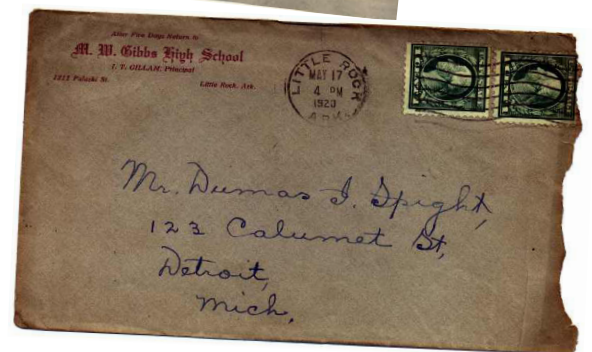 After Five Days Return to
M. W. Gibbs High School
I. T. GILLAM, Principal
1212 Pulaski St. Little Rock, Ark.
LITTLE ROCK
MAY 17
4 PM
1920
ARK.
Mr. Dumas I. Spight,
123 Calumet St,
Detroit,
Mich.